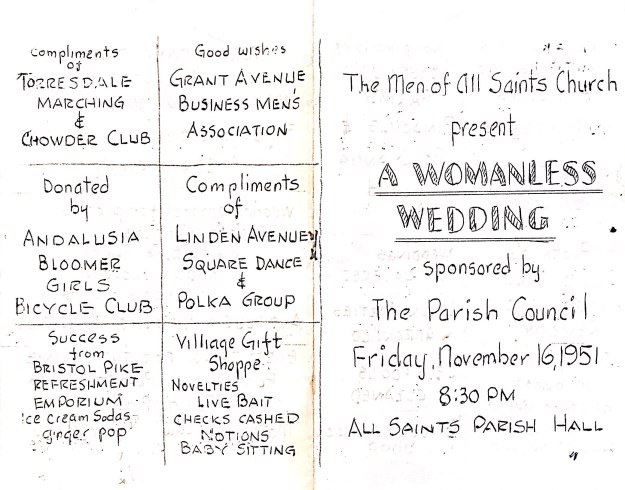 Compliments
of
TORRESDALE
MARCHING
&
CHOWDER CLUB
Good wishes
GRANT AVENUE
BUSINESS MEN'S
ASSOCIATION
Donated
by
ANDALUSIA
BLOOMER
GIRLS
BICYCLE CLUB
Compliments
of
LINDEN AVENUE
SQUARE DANCE
&
POLKA GROUP
Success
from
BRISTOL PIKE
REFRESHMENT
EMPORIUM
Ice Cream Sodas
ginger pop
Villiage Gift
Shoppe
NOVELTIES
LIVE BAIT
CHECKS CASHED
NOTIONS
BABY SITTING
The Men of All Saints Church
present
A WOMANLESS
WEDDING
sponsored by
The Parish Council
Friday, November 16, 1951
8:30 PM
ALL SAINTS PARISH HALL